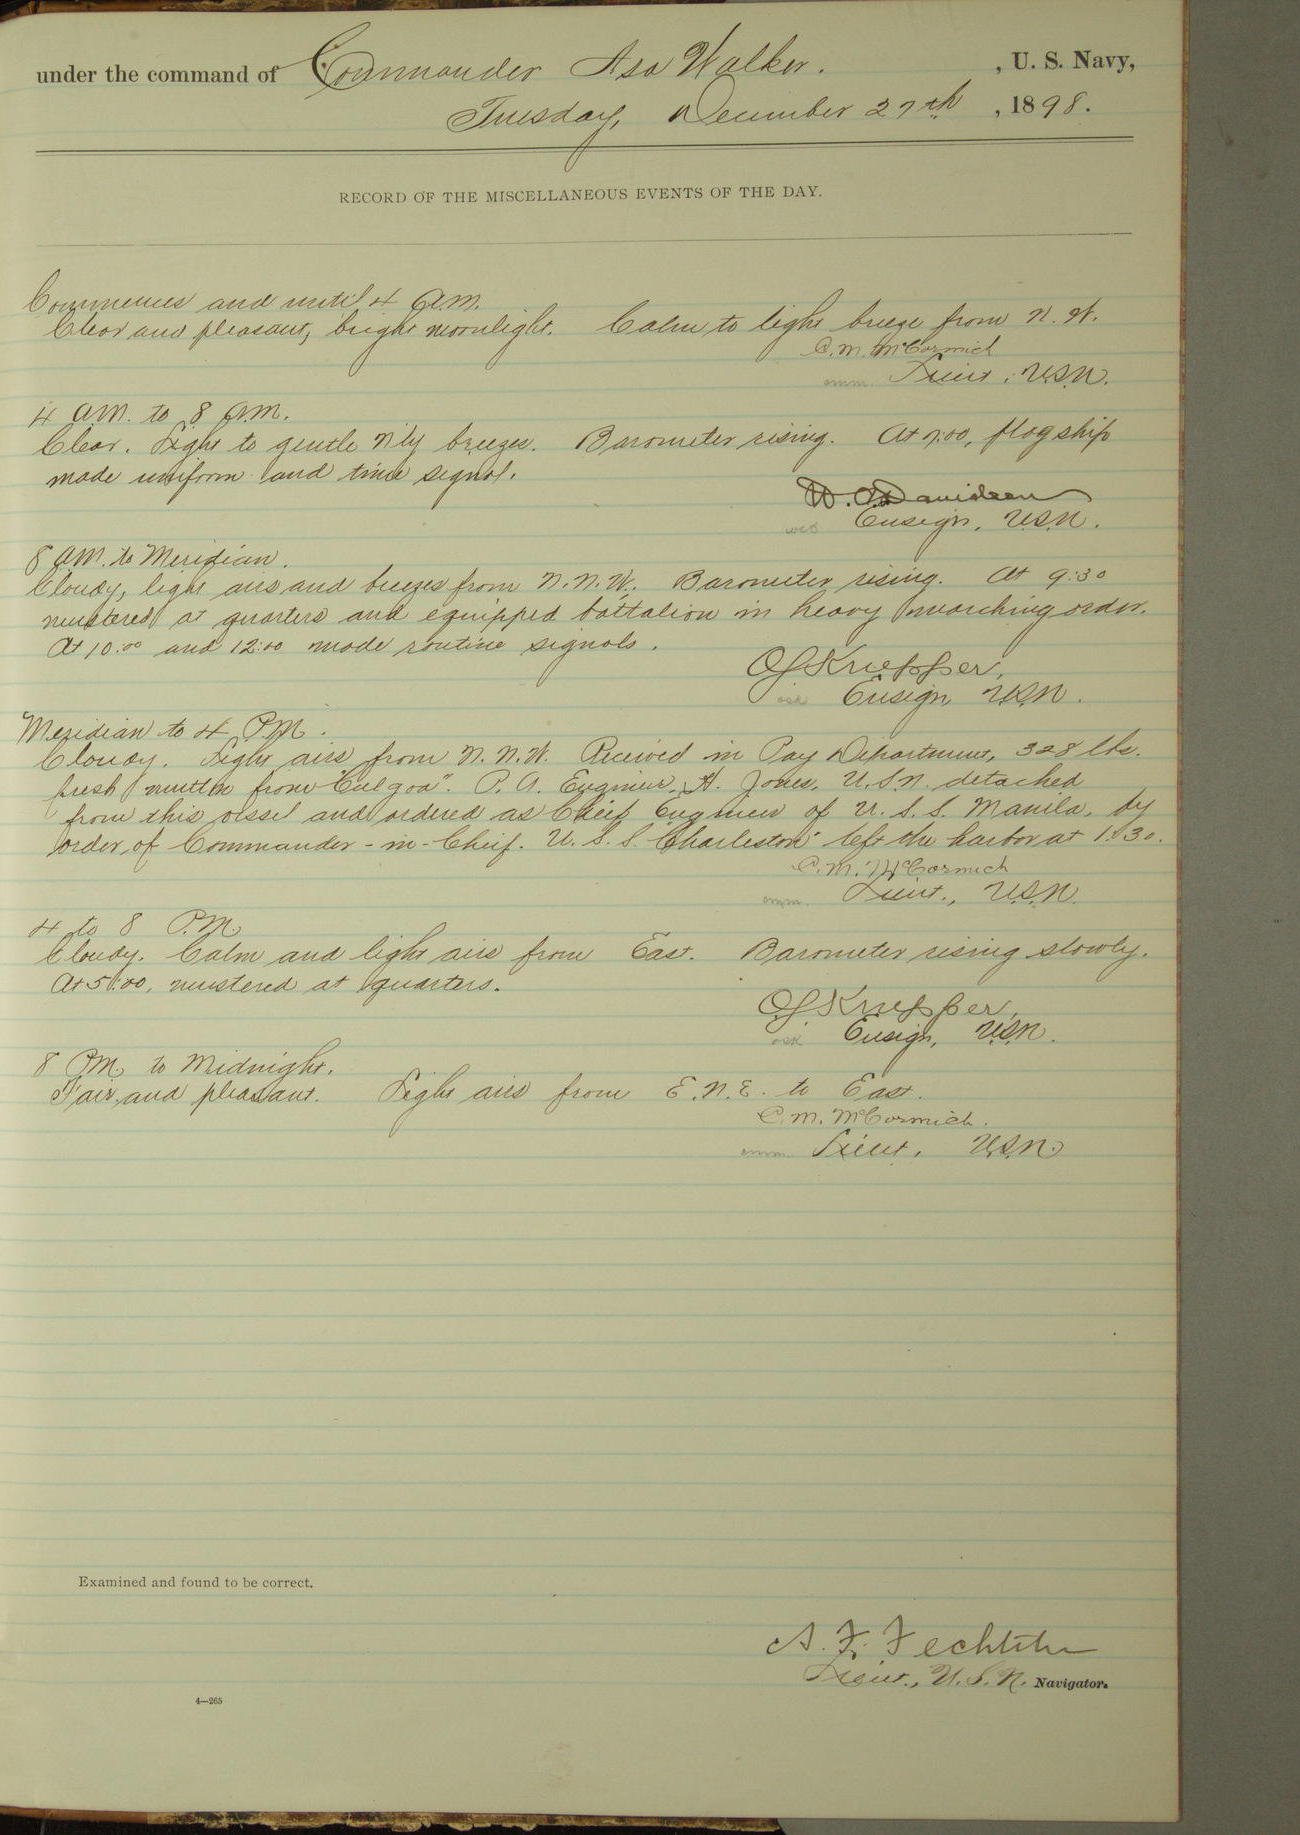 under the command of Commander Asa Walker. , U. S. Navy,
Tuesday, December 27th , 1898.
RECORD OF THE MISCELLANEOUS EVENTS OF THE DAY.
Commences and until 4 A.M.
Clear and pleasant, bright moonlight. Calm to light breeze from N. W.
C. M. McCormick
Lieut., U.S.N.
4 A.M. to 8 A.M.
Clear. Light to gentle N'ly breezes. Barometer rising. At 7:00, flagship
made uniform and time signal.
Ensign, U.S.N.
8 A.M. to Meridian.
Cloudy, light airs and breezes from N.N.W. Barometer rising. At 9:30
mustered at quarters and equipped battalion in heavy marching order.
At 10:00 and 12:00 made routine signals.
O S Knepper,
Ensign U.S.N.
Meridian to 4 P.M.
Cloudy. Light airs from N.N.W. Received in Pay Department, 328 lbs.
fresh mutton from "Culgoa". P. A. Engineer, H. Jones, U.S.N. detached
from this vessel and ordered as Chief Engineer of U. S. S. Manila, by
order of Commander-in-Chief. U. S. S. Charleston left the harbor at 1:30.
C. M. McCormick
Lieut., U.S.N.
4 to 8 P.M.
Cloudy. Calm and light airs from East. Barometer rising slowly.
At 5:00, mustered at quarters.
O S Knepper,
Ensign, U.S.N.
8 P.M. to Midnight.
Fair and pleasant. Light airs from E.N.E. to East.
C. M. McCormick.
Lieut, U.S.N.
Examined and found to be correct.
A. F. Fechteler
Lieut., U.S.N. Navigator.
4—265